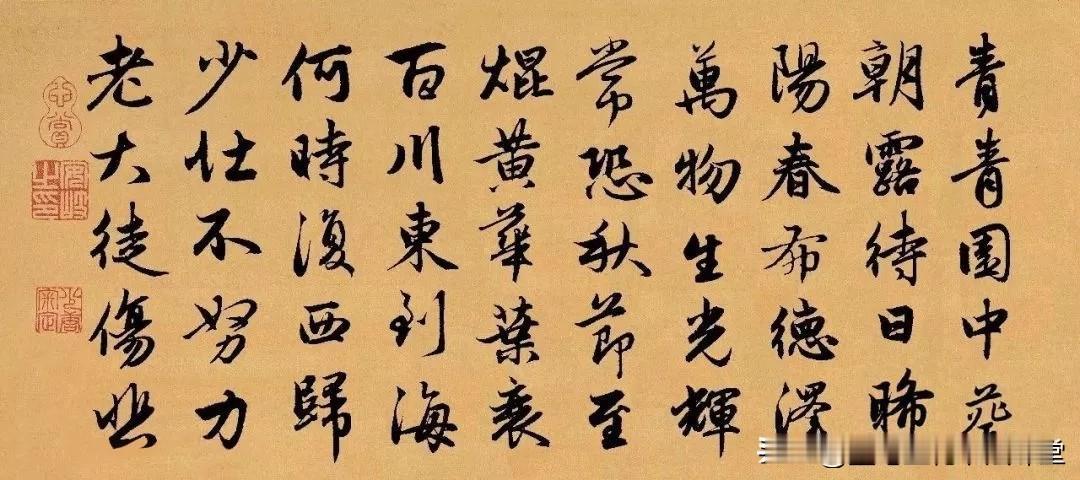 青青園中葵
朝露待日晞
陽春布德澤
萬物生光輝
常恐秋節至
焜黃華葉衰
百川東到海
何時復西歸
少壯不努力
老大徒傷悲
堂